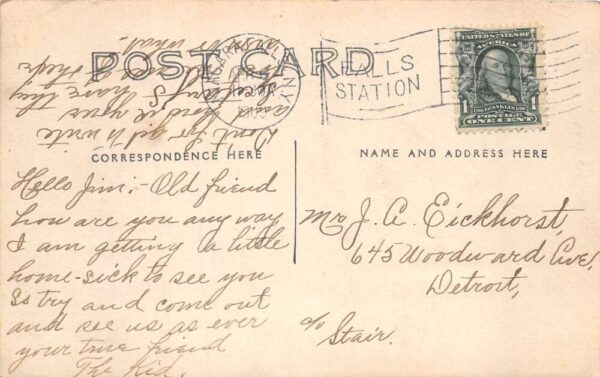 POST CARD
NIAGARA FALLS, N.Y.
FALLS
STATION
UNITED STATES OF
AMERICA
FRANKLIN
1 POSTAGE 1
ONE CENT
CORRESPONDENCE HERE
NAME AND ADDRESS HERE
Hello Jim:- Old friend
how are you any way
I am getting a little
home-sick to see you
So try and come out
and see us as ever
your true friend
The Kid.
Don't for get it write
and
have they
or what
Mr J. A. Eickhorst,
645 Woodward Ave,
Detroit,
c/o Stair.